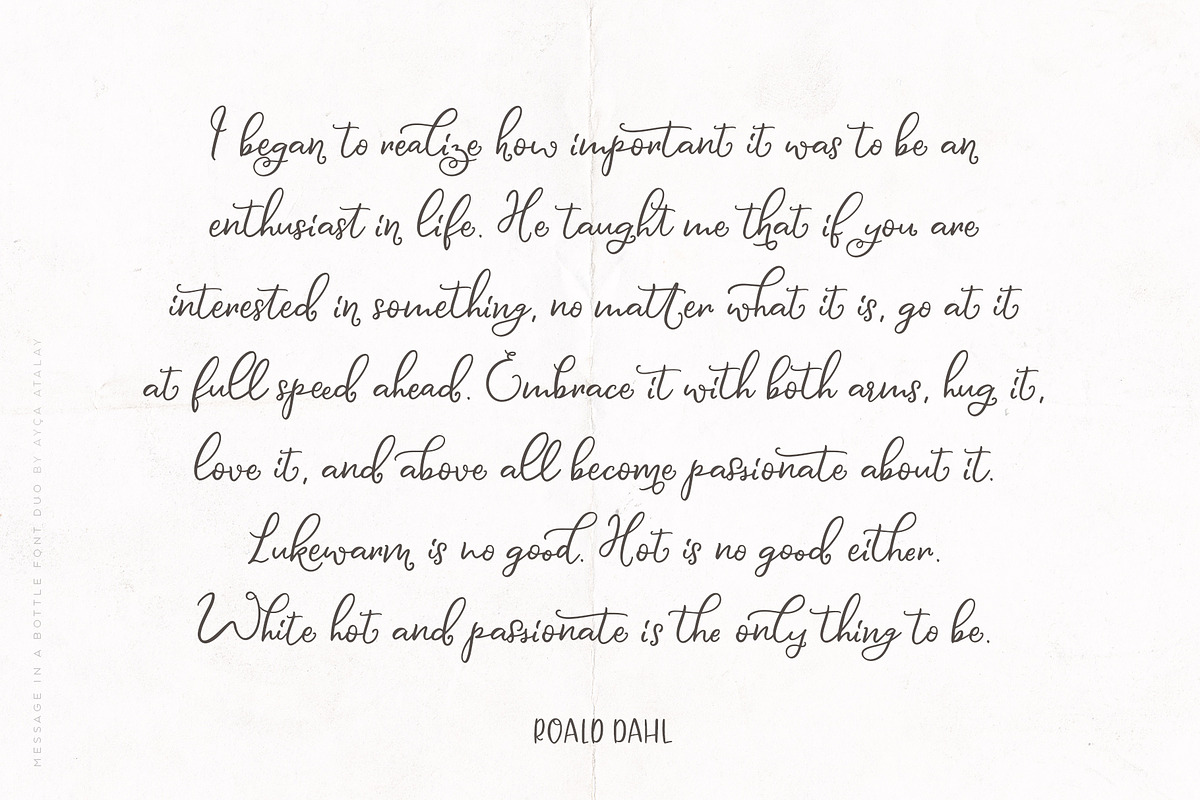 I began to realize how important it was to be an
enthusiast in life. He taught me that if you are
interested in something, no matter what it is, go at it
at full speed ahead. Embrace it with both arms, hug it,
love it, and above all become passionate about it.
Lukewarm is no good. Hot is no good either.
White hot and passionate is the only thing to be.
ROALD DAHL
MESSAGE IN A BOTTLE FONT DUO BY AYÇA ATALAY